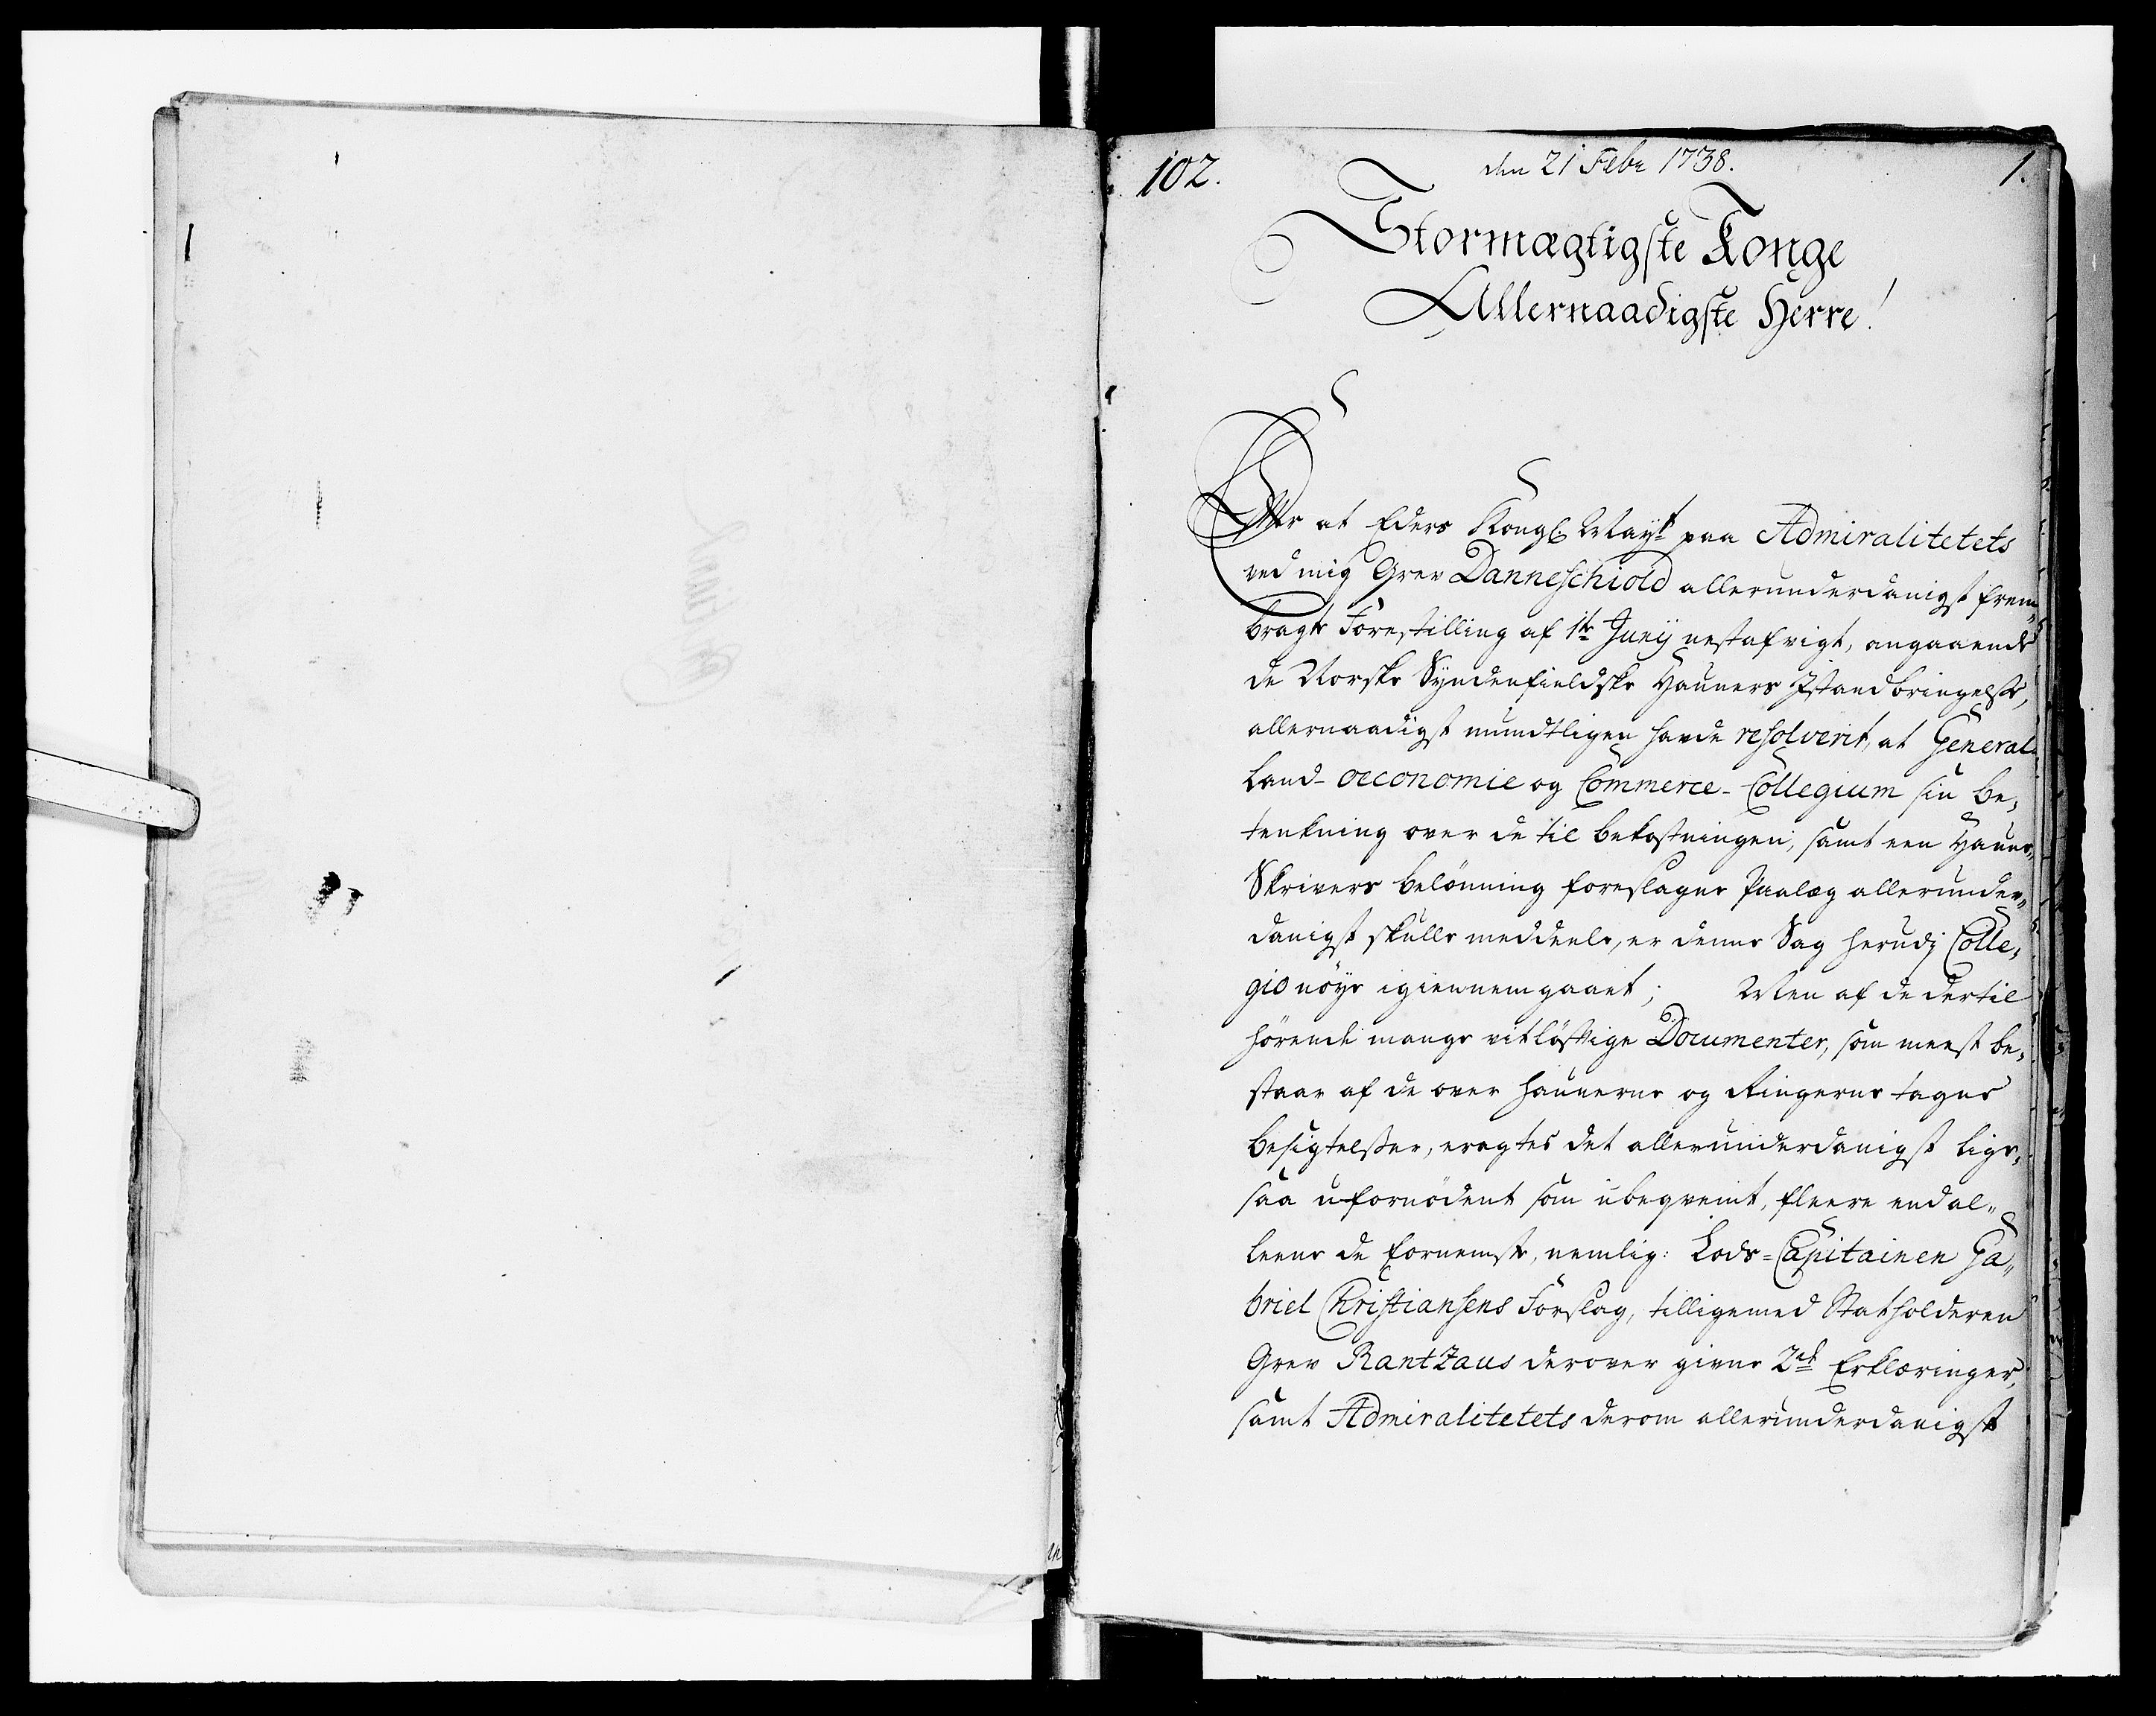 102.
den 21 Febr 1738.
1.
Stormægtigste Konge
Allernaadigste Herre!
Efter at Eders Kongl. Mayt paa Admiralitetets
ved mig Grev Danneschiold allerunderdanigst frem„
bragte Forestilling af 1te Junij nestafvigt, angaaende
de Norske Syndenfieldske Hauners Istandbringelse,
allernaadigst mundtligen havde resolverit, at General
Land- oeconomie og Commerce-Collegium sin be„
tenkning over de til bekostningen, samt een Haune„
Skrivers belönning foreslagne Paalæg allerunder„
danigst skulle meddeele, er denne Sag herudj Colle„
gio nöye igiennemgaaet; Men af de dertil
hörende mange vitlöftige Documenter, som meest be„
staar af de over haunerne og Ringerne tagne
besigtelßer, eragtes det allerunderdanigst lige„
saa ufornödent som ubeqvemt, fleere end al„
leene de fornemste, nemlig: Lods-Capitainen Ga„
briel Christiansens Forslag, tilligemed Statholderen
Grev Rantzaus derover givne 2de Erklæringer,
samt Admiralitetets derom allerunderdanigst